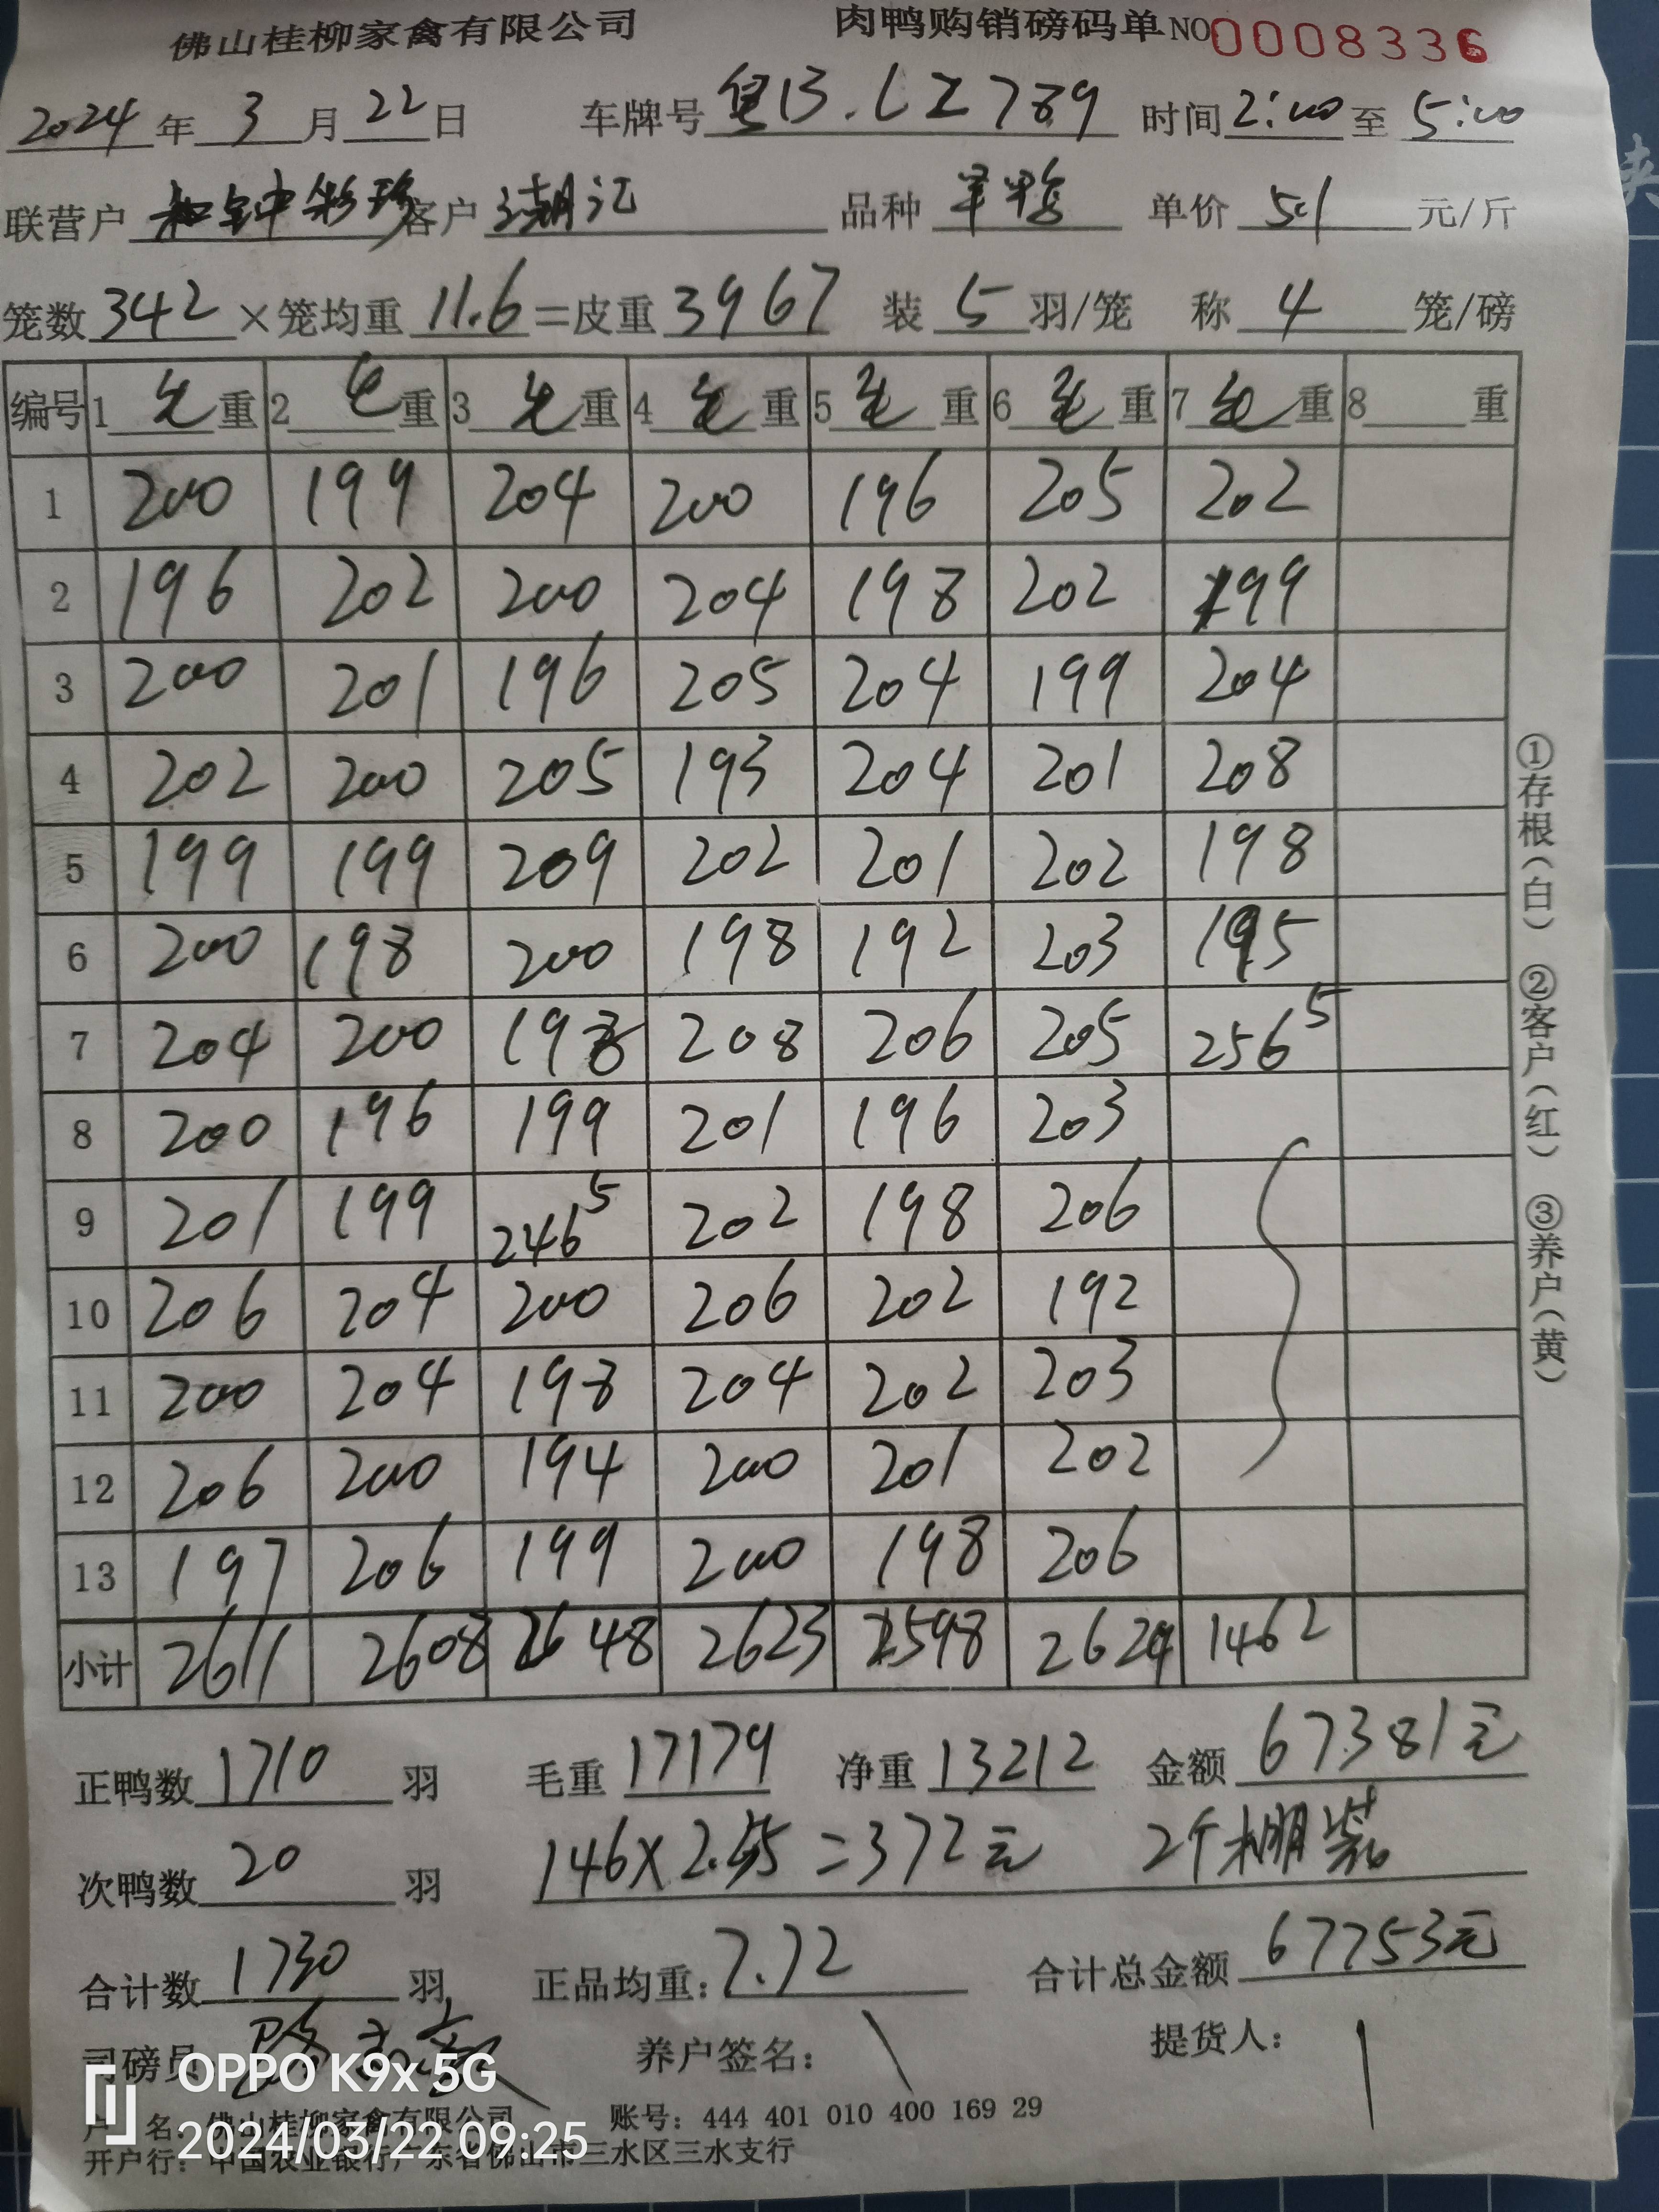 佛山桂柳家禽有限公司 肉鸭购销磅码单 NO 0008336
2024 年 3 月 22 日 车牌号 粤B.LZ789 时间 2:00 至 5:00
联营户 和 钟彩珍 客户 潮记 品种 单价 5.1 元/斤
笼数 342 ×笼均重 11.6 =皮重 3967 装 5 羽/笼 称 4 笼/磅
编号 1 毛 重 2 毛 重 3 毛 重 4 毛 重 5 毛 重 6 毛 重 7 毛 重 8 重
1 200 199 204 200 196 205 202
2 196 202 200 204 198 202 199
3 200 201 196 205 204 199 204
4 202 200 205 193 204 201 208
5 199 199 209 202 201 202 198
6 200 198 200 198 192 203 195
7 204 200 198 208 206 205 256⁵
8 200 196 199 201 196 203
9 201 199 246⁵ 202 198 206
10 206 204 200 206 202 192
11 200 204 198 204 202 203
12 206 200 194 200 201 202
13 197 206 199 200 198 206
小计 2611 2608 2648 2623 2598 2629 1462
正鸭数 1710 羽 毛重 17179 净重 13212 金额 67381元
次鸭数 20 羽 146×2.55=372元 2个棚装
合计数 1730 羽 正品均重: 7.72 合计总金额 67753元
司磅员 养户签名: 提货人:
户 名: 佛山桂柳家禽有限公司 账号: 444 401 010 400 169 29
开户行: 中国农业银行广东省佛山市三水区三水支行
①存根(白) ②客户(红) ③养户(黄)
OPPO K9x 5G
2024/03/22 09:25